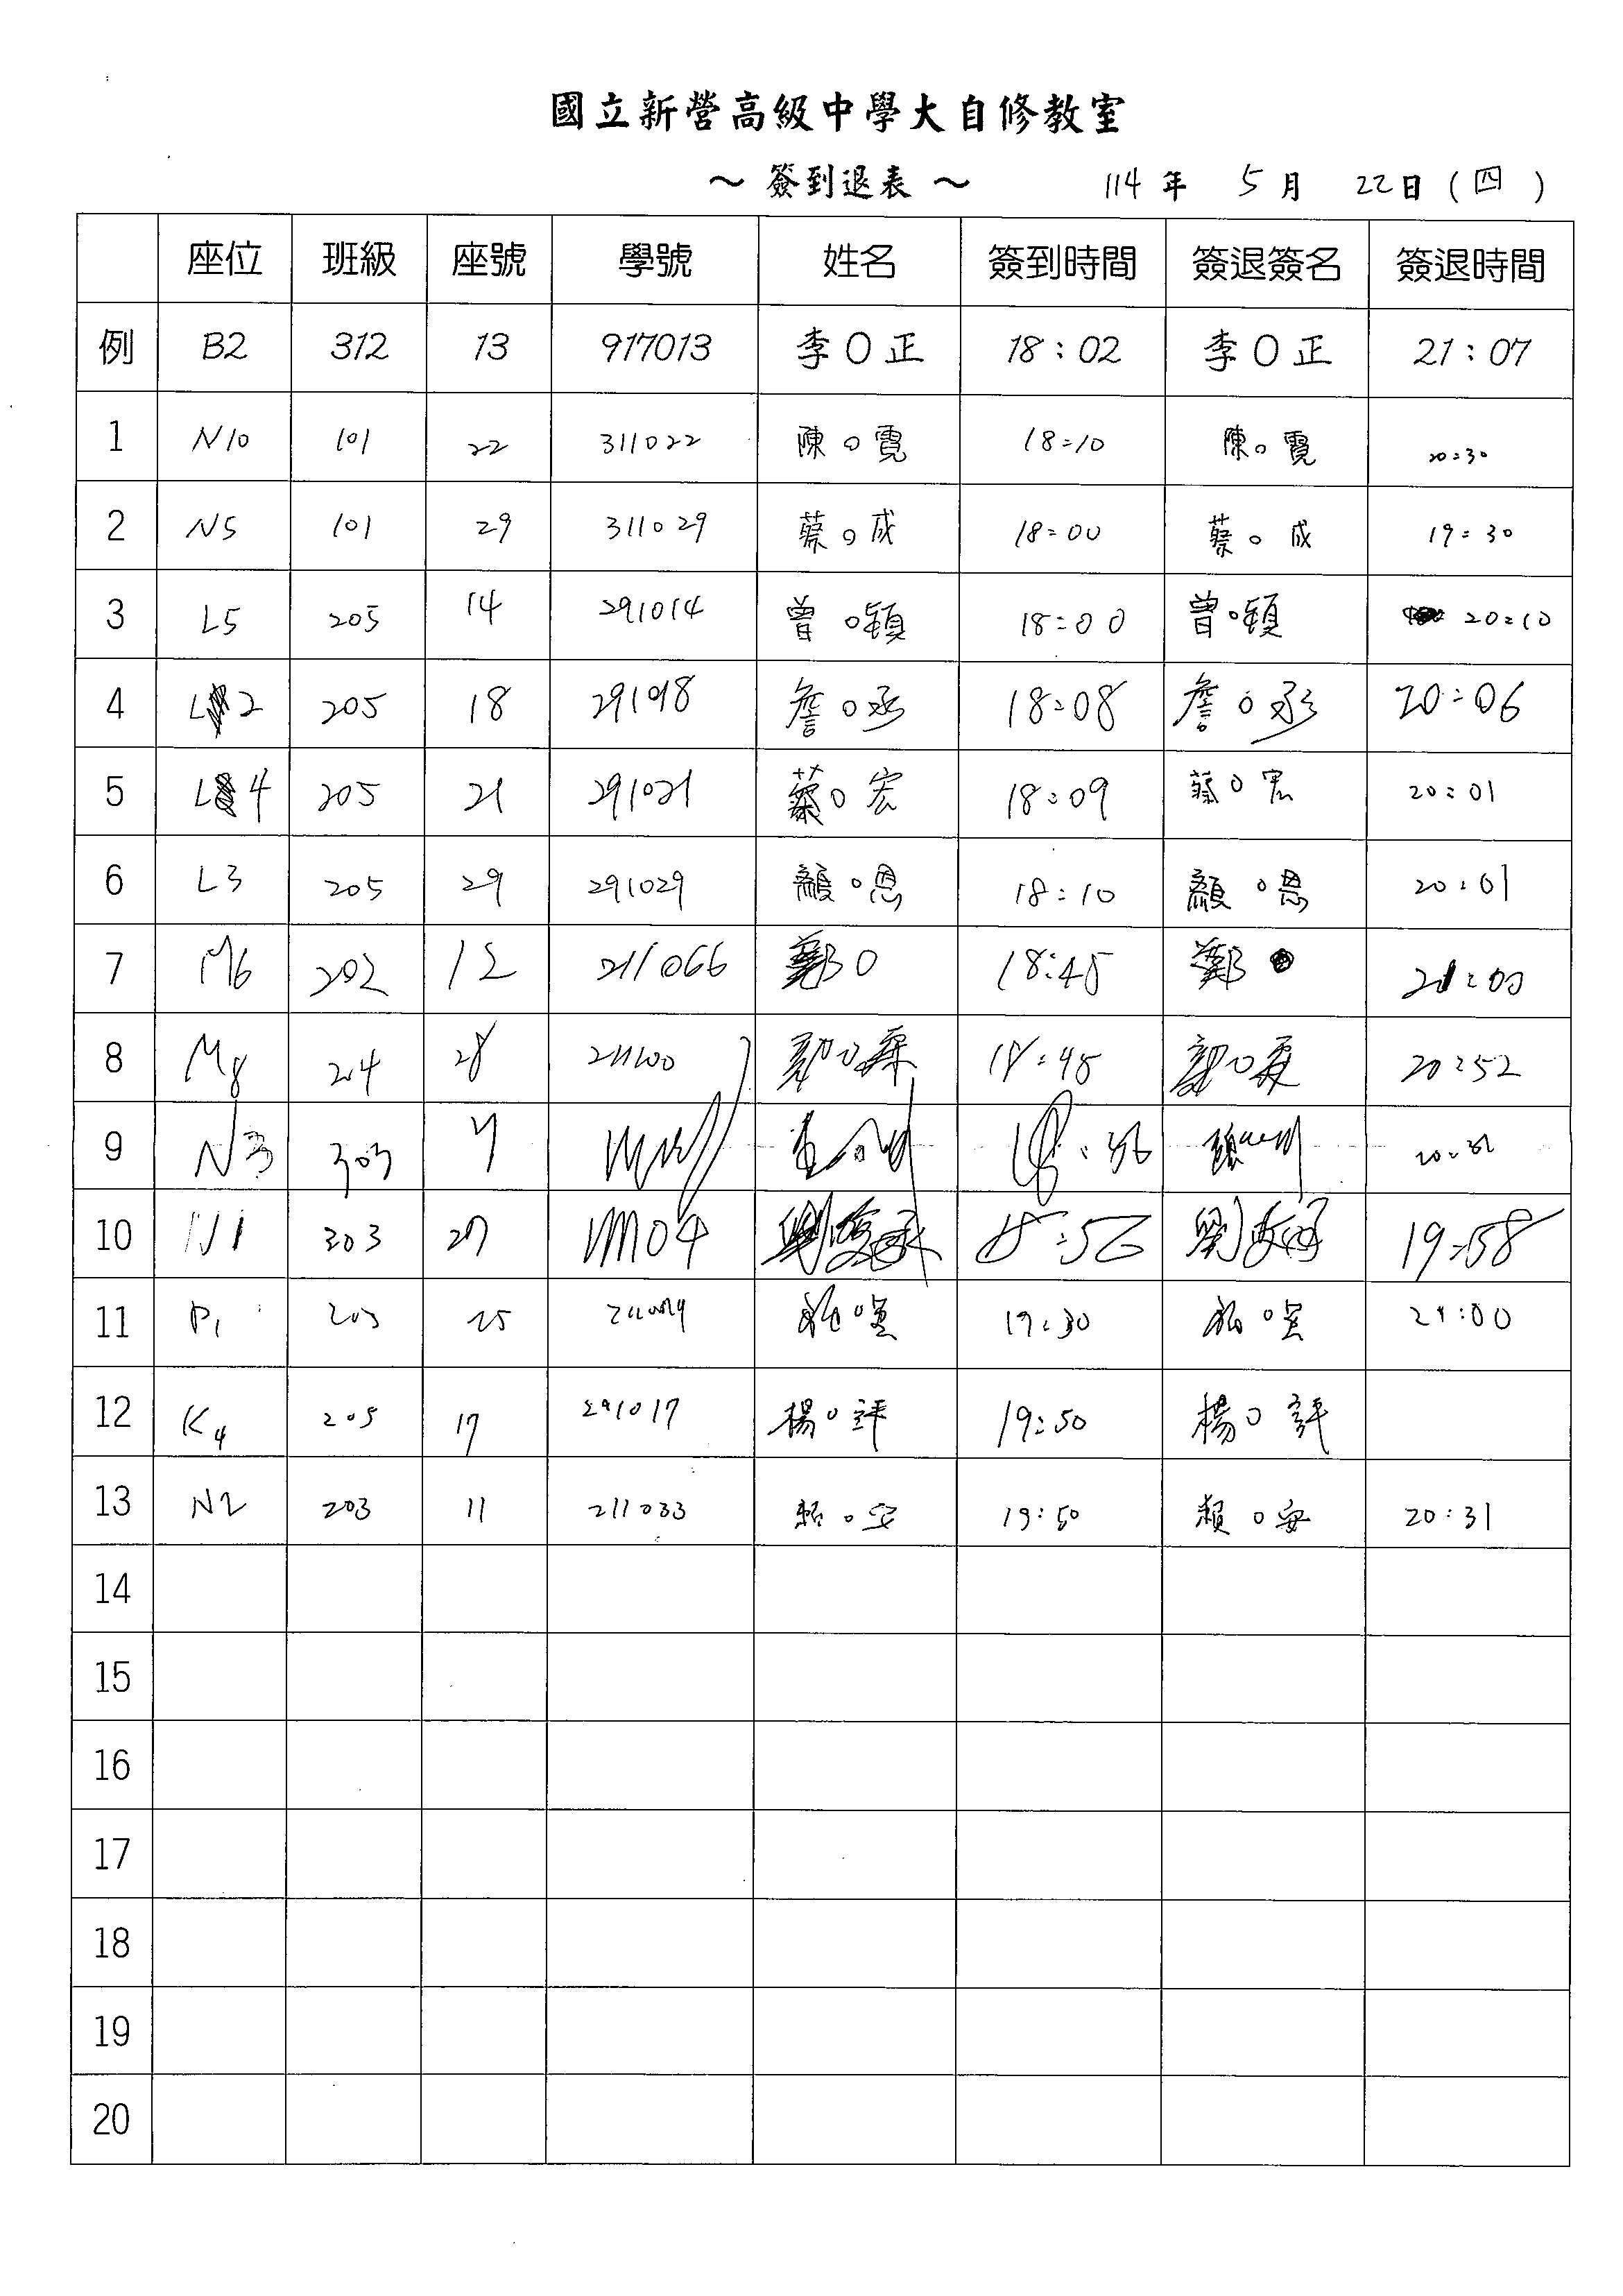 國立新營高級中學大自修教室
～ 簽到退表 ～ 114 年 5 月 22 日 ( 四 )
座位 班級 座號 學號 姓名 簽到時間 簽退簽名 簽退時間
例 B2 312 13 917013 李O正 18:02 李O正 21:07
1 N10 101 22 311022 陳O霓 18:10 陳O霓 20:30
2 N5 101 29 311029 蔡O成 18:00 蔡O成 19:30
3 L5 205 14 291014 曾O穎 18:00 曾O穎 20:10
4 L2 205 18 291018 詹O丞 18:08 詹O丞 20:06
5 L4 205 21 291021 蔡O宏 18:09 蔡O宏 20:01
6 L3 205 29 291029 顏O恩 18:10 顏O恩 20:01
7 M6 202 12 211066 鄭O 18:45 鄭 21:00
8 M8 204 28 18:48 20:52
9 N3 303 7
10 N1 303 27 18:56 19:58
11 P1 203 25 19:30 21:00
12 K4 205 17 291017 楊O評 19:50 楊O評
13 N2 203 11 211033 賴O安 19:50 賴O安 20:31
14
15
16
17
18
19
20